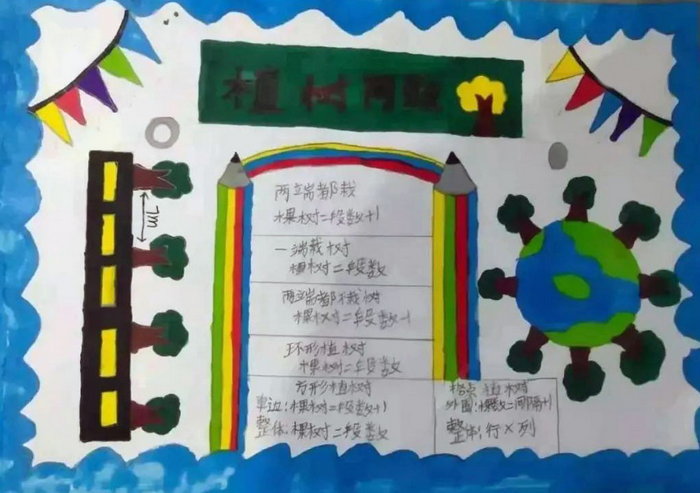 植树问题
两端都栽
棵树=段数+1
一端栽树
棵树=段数
两端都不栽树
棵树=段数-1
环形植树
棵树=段数
方形植树
单边:棵树=段数+1
整体:棵树=段数
格点植树
外围:棵数=间隔+1
整体:行×列